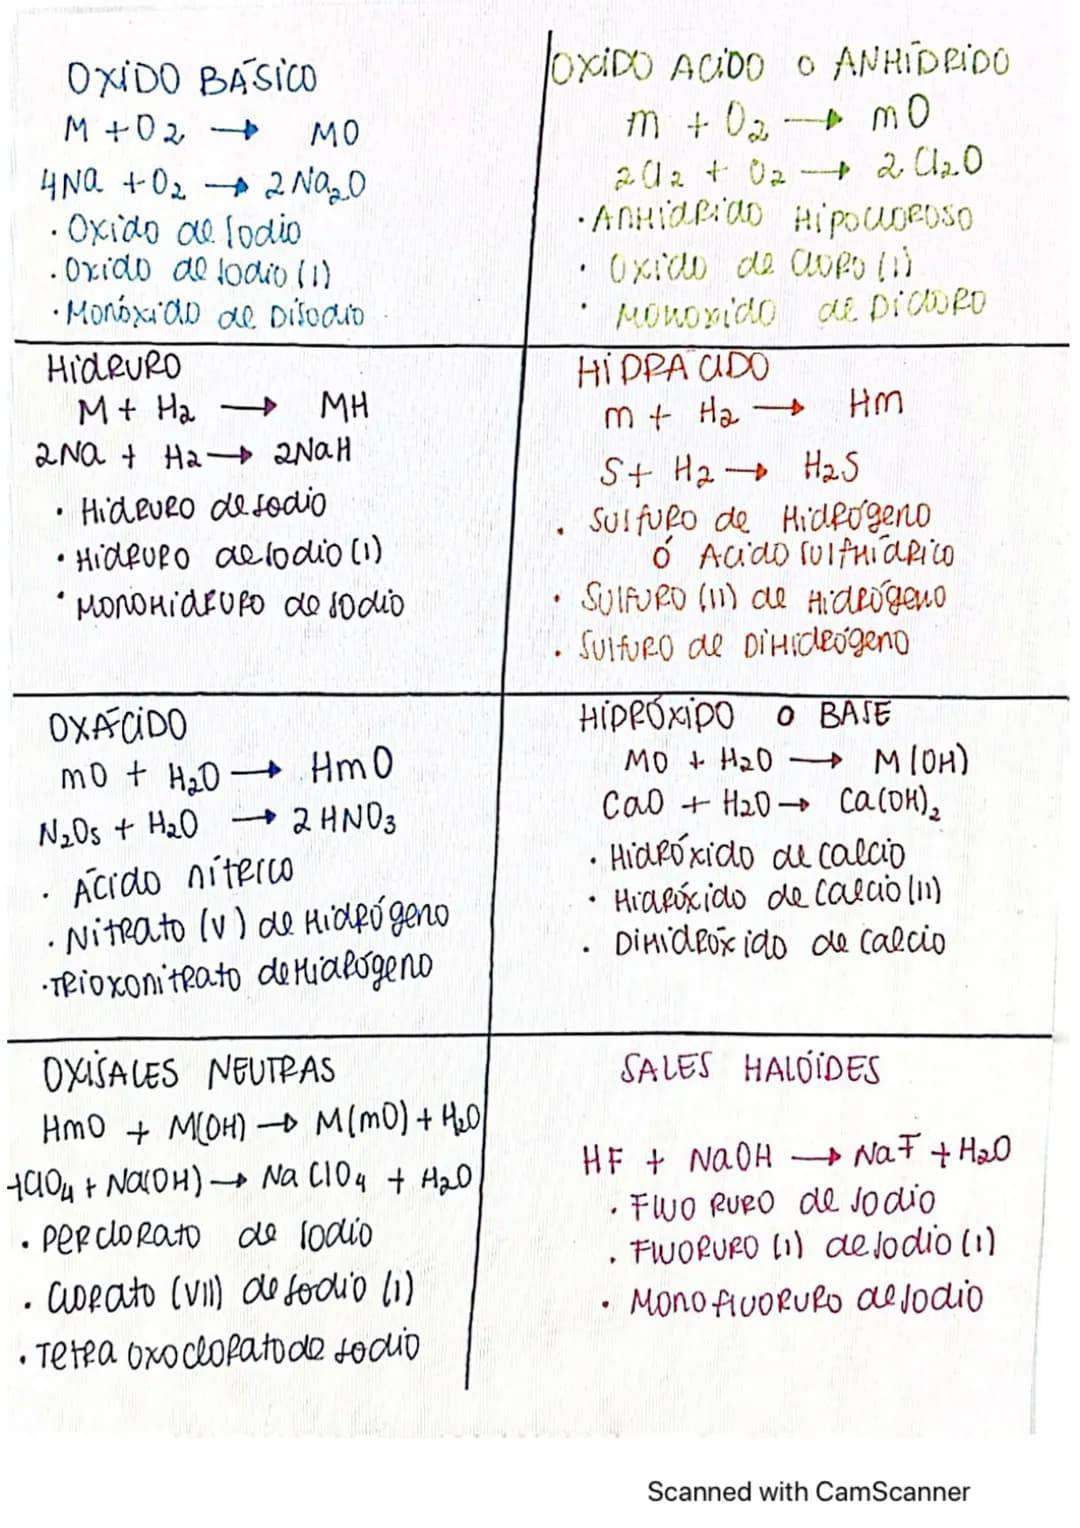 OXIDO BÁSICO
M + O2 → MO
4Na + O2 → 2Na2O
· Oxido de sodio
· Oxido de sodio (I)
· Monóxido de Disodio
OXIDO ACIDO o ANHIDRIDO
m + O2 → mO
2Cl2 + O2 → 2Cl2O
· ANHIdRido Hipocloroso
· Oxido de cloro (I)
· Monoxido de Dicloro
HidRURO
M + H2 → MH
2Na + H2 → 2NaH
· HidRURO de sodio
· HidRURO de sodio (I)
· MONOHidRURO de sodio
HIDRÁCIDO
m + H2 → Hm
S + H2 → H2S
· SulfuRO de HidRógeno
ó Acido sulfhídRico
· SulfuRO (II) de HidRógeno
· SulfuRO de DiHidRógeno
OXÁCIDO
mO + H2O → HmO
N2O5 + H2O → 2HNO3
· Ácido nítRico
· NitRato (V) de HidRógeno
· TRioxonitRato de HidRógeno
HIDRÓXIDO o BASE
MO + H2O → M(OH)
CaO + H2O → Ca(OH)2
· HidRóxido de calcio
· HidRóxido de Calcio (II)
· DiHidRóxido de Calcio
OXISALES NEUTRAS
HmO + M(OH) → M(mO) + H2O
HClO4 + Na(OH) → NaClO4 + H2O
· PERcloRato de sodio
· CloRato (VII) de sodio (I)
· TetRa oxocloRato de sodio
SALES HALÓIDES
HF + NaOH → NaF + H2O
· FluoRURO de sodio
· FluoRURO (I) de sodio (I)
· MonofluoRURO de sodio
Scanned with CamScanner